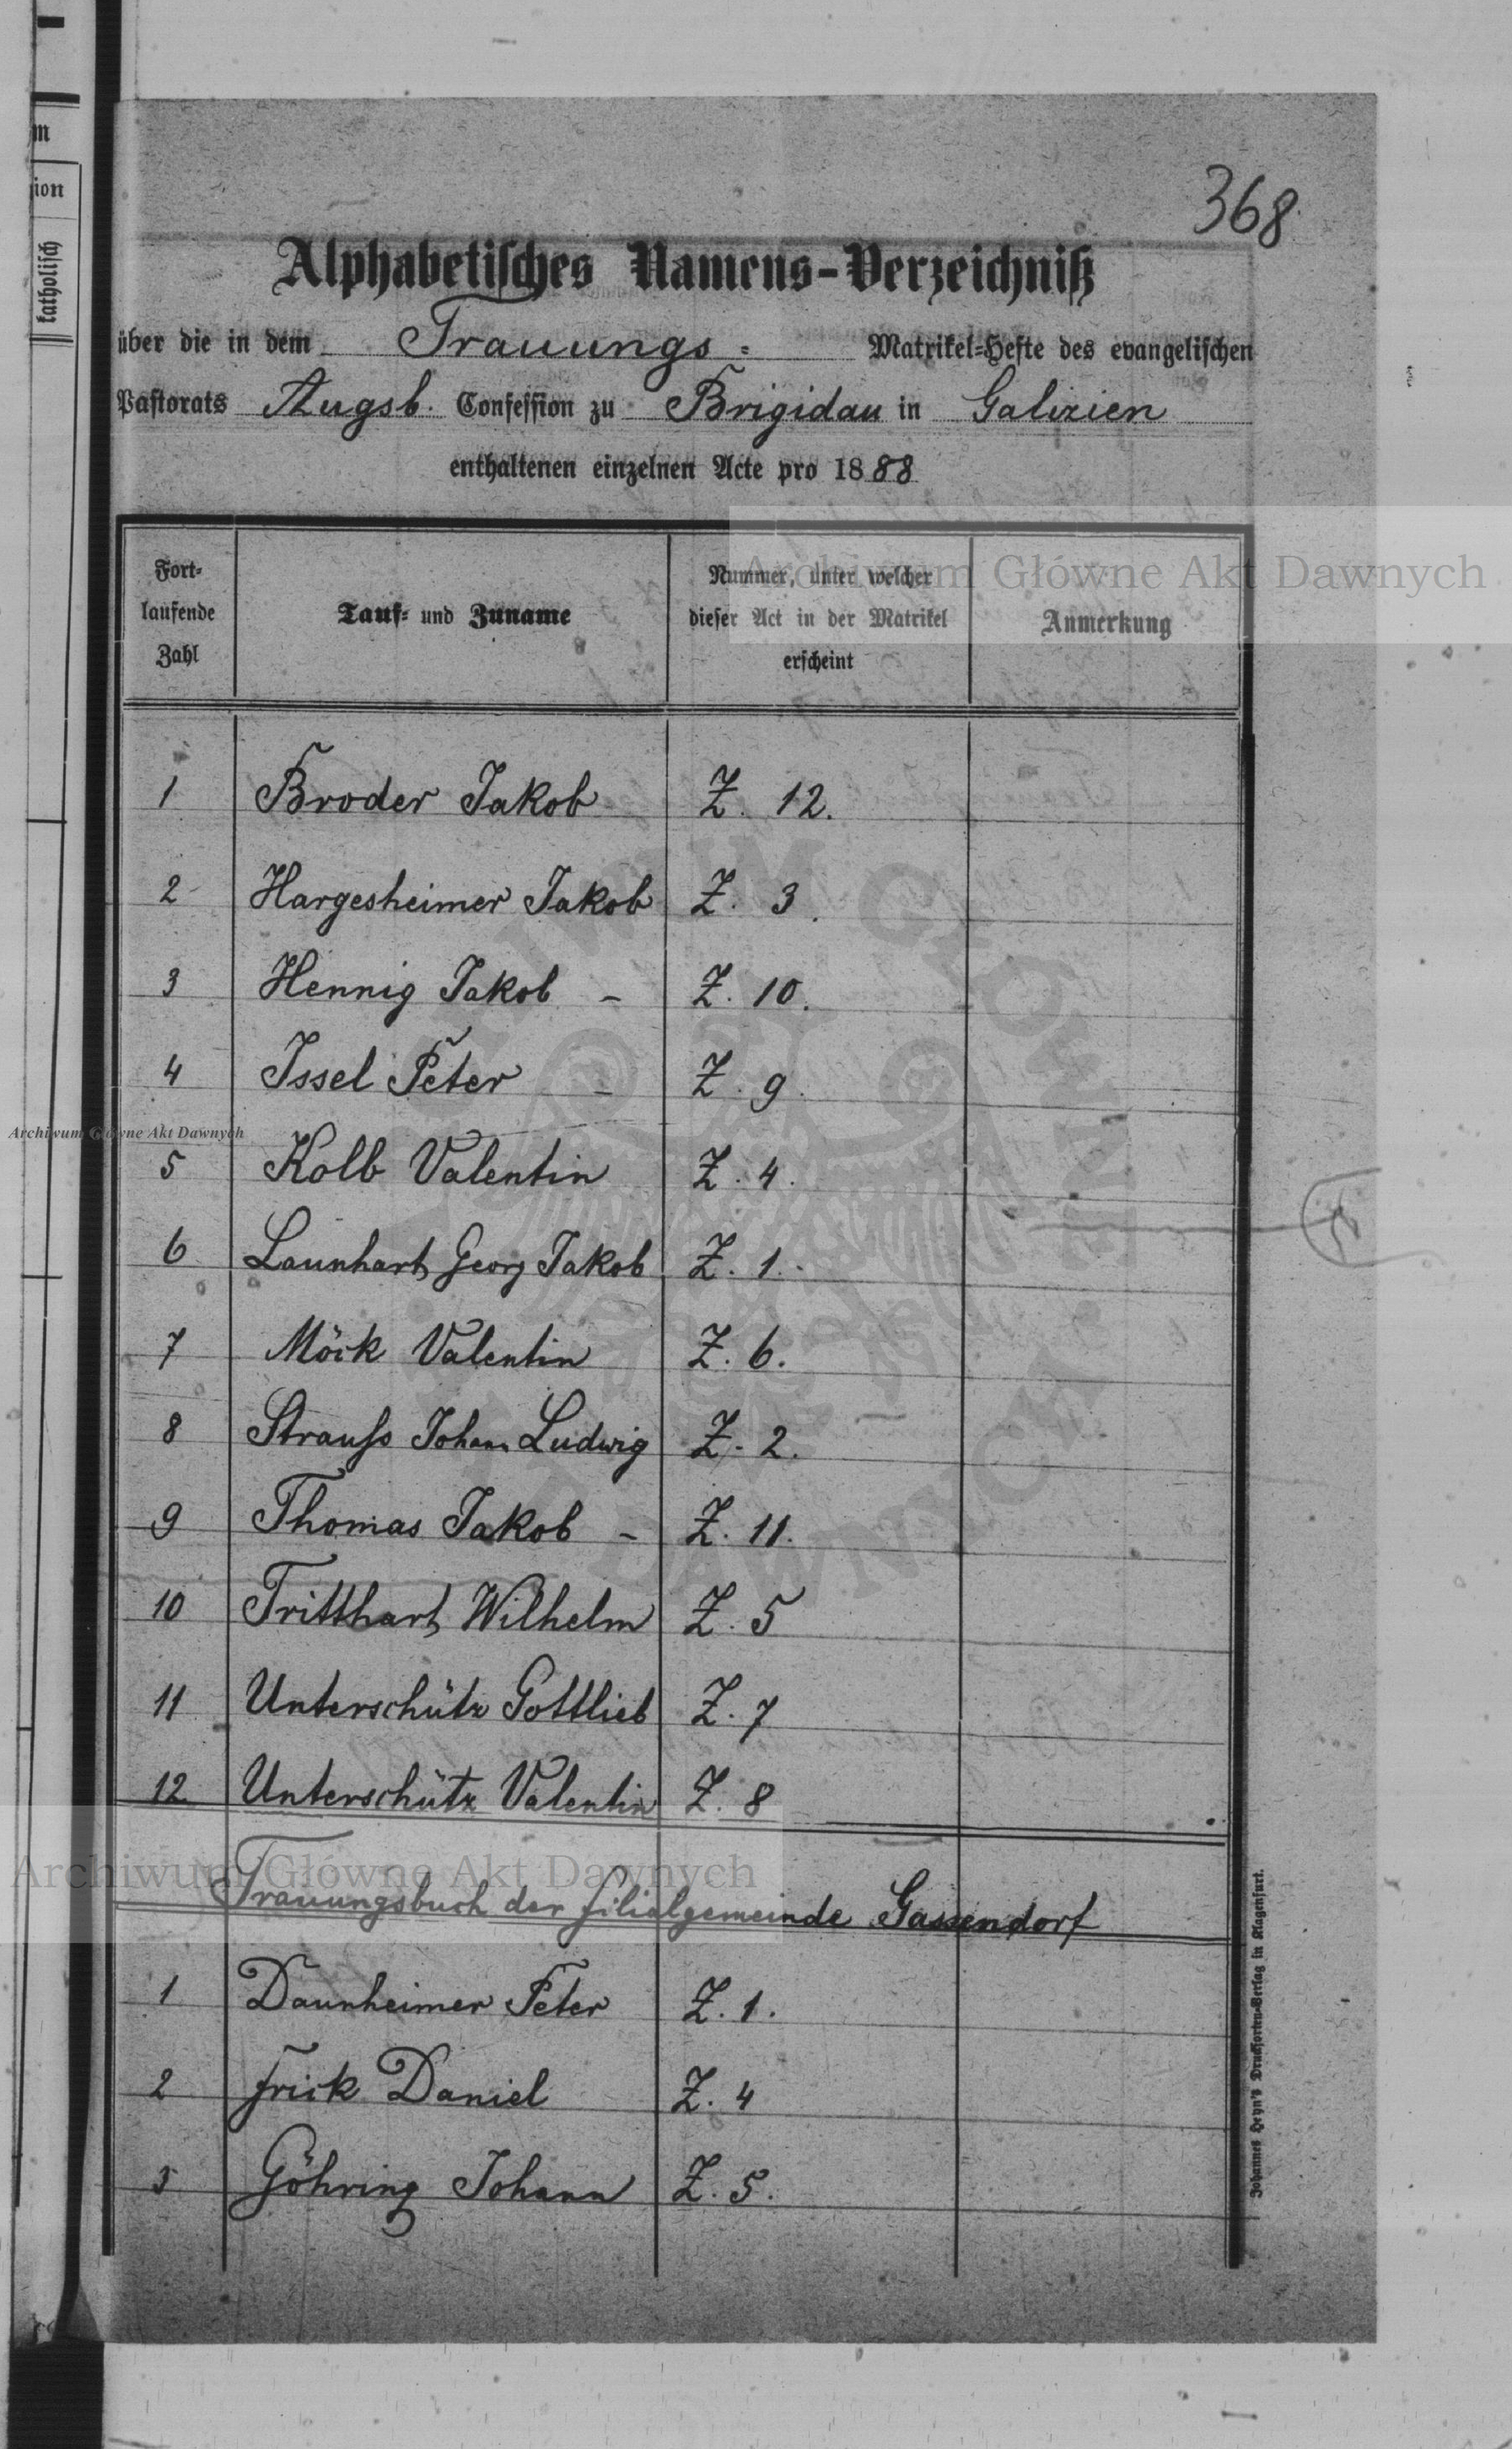 m
ion
katholisch
368
Alphabetisches Namens-Verzeichniß
über die in dem Trauungs- Matrikel-Hefte des evangelischen
Pastorats Augsb. Confession zu Brigidau in Galizien
enthaltenen einzelnen Acte pro 1888
Fort-
laufende
Zahl
Tauf- und Zuname
Nummer, unter welcher
dieser Act in der Matrikel
erscheint
Anmerkung
Archiwum Główne Akt Dawnych
1 Broder Jakob Z. 12.
2 Hargesheimer Jakob Z. 3.
3 Hennig Jakob - Z. 10.
4 Issel Peter - Z. 9.
Archiwum Główne Akt Dawnych
5 Kolb Valentin Z. 4.
6 Launhart Georg Jakob Z. 1.
7 Möck Valentin Z. 6.
8 Strauß Johann Ludwig Z. 2.
9 Thomas Jakob - Z. 11.
10 Tritthart Wilhelm Z. 5
11 Unterschütz Gottlieb Z. 7
12 Unterschütz Valentin Z. 8
Archiwum Główne Akt Dawnych
Trauungsbuch der Filialgemeinde Gassendorf
1 Daunheimer Peter Z. 1.
2 Frick Daniel Z. 4
3 Göhring Johann Z. 5.
Johannes Heyn's Drucksorten-Verlag in Klagenfurt.
ARCHIWUM GŁÓWNE AKT DAWNYCH